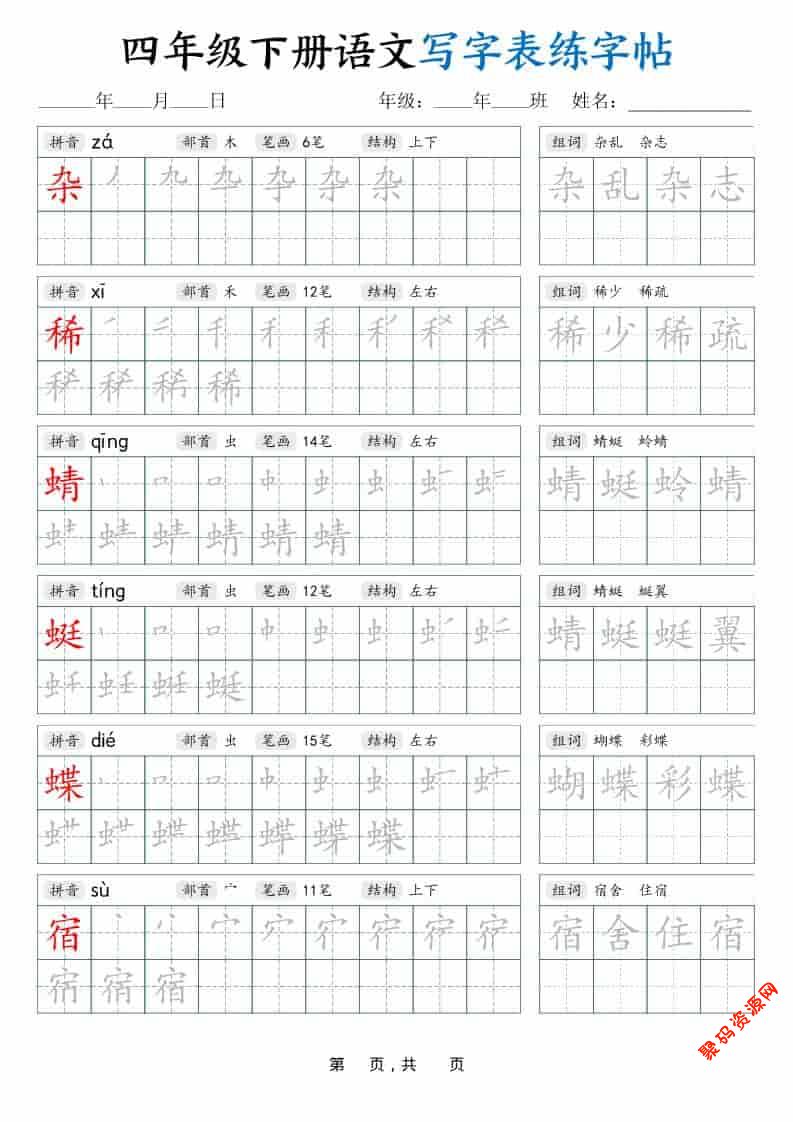 四年级下册语文写字表练字帖
______年____月____日 年级：____年____班 姓名：____________
拼音 zá 部首 木 笔画 6笔 结构 上下 组词 杂乱 杂志
杂 杂 杂乱杂志
拼音 xī 部首 禾 笔画 12笔 结构 左右 组词 稀少 稀疏
稀 稀少稀疏
稀
拼音 qīng 部首 虫 笔画 14笔 结构 左右 组词 蜻蜓 蛉蜻
蜻 蜻蜓蛉蜻
蜻
拼音 tíng 部首 虫 笔画 12笔 结构 左右 组词 蜻蜓 蜓翼
蜓 蜻蜓蜓翼
蜓
拼音 dié 部首 虫 笔画 15笔 结构 左右 组词 蝴蝶 彩蝶
蝶 蝴蝶彩蝶
蝶
拼音 sù 部首 宀 笔画 11笔 结构 上下 组词 宿舍 住宿
宿 宿舍住宿
宿
聚码资源网
第 页，共 页